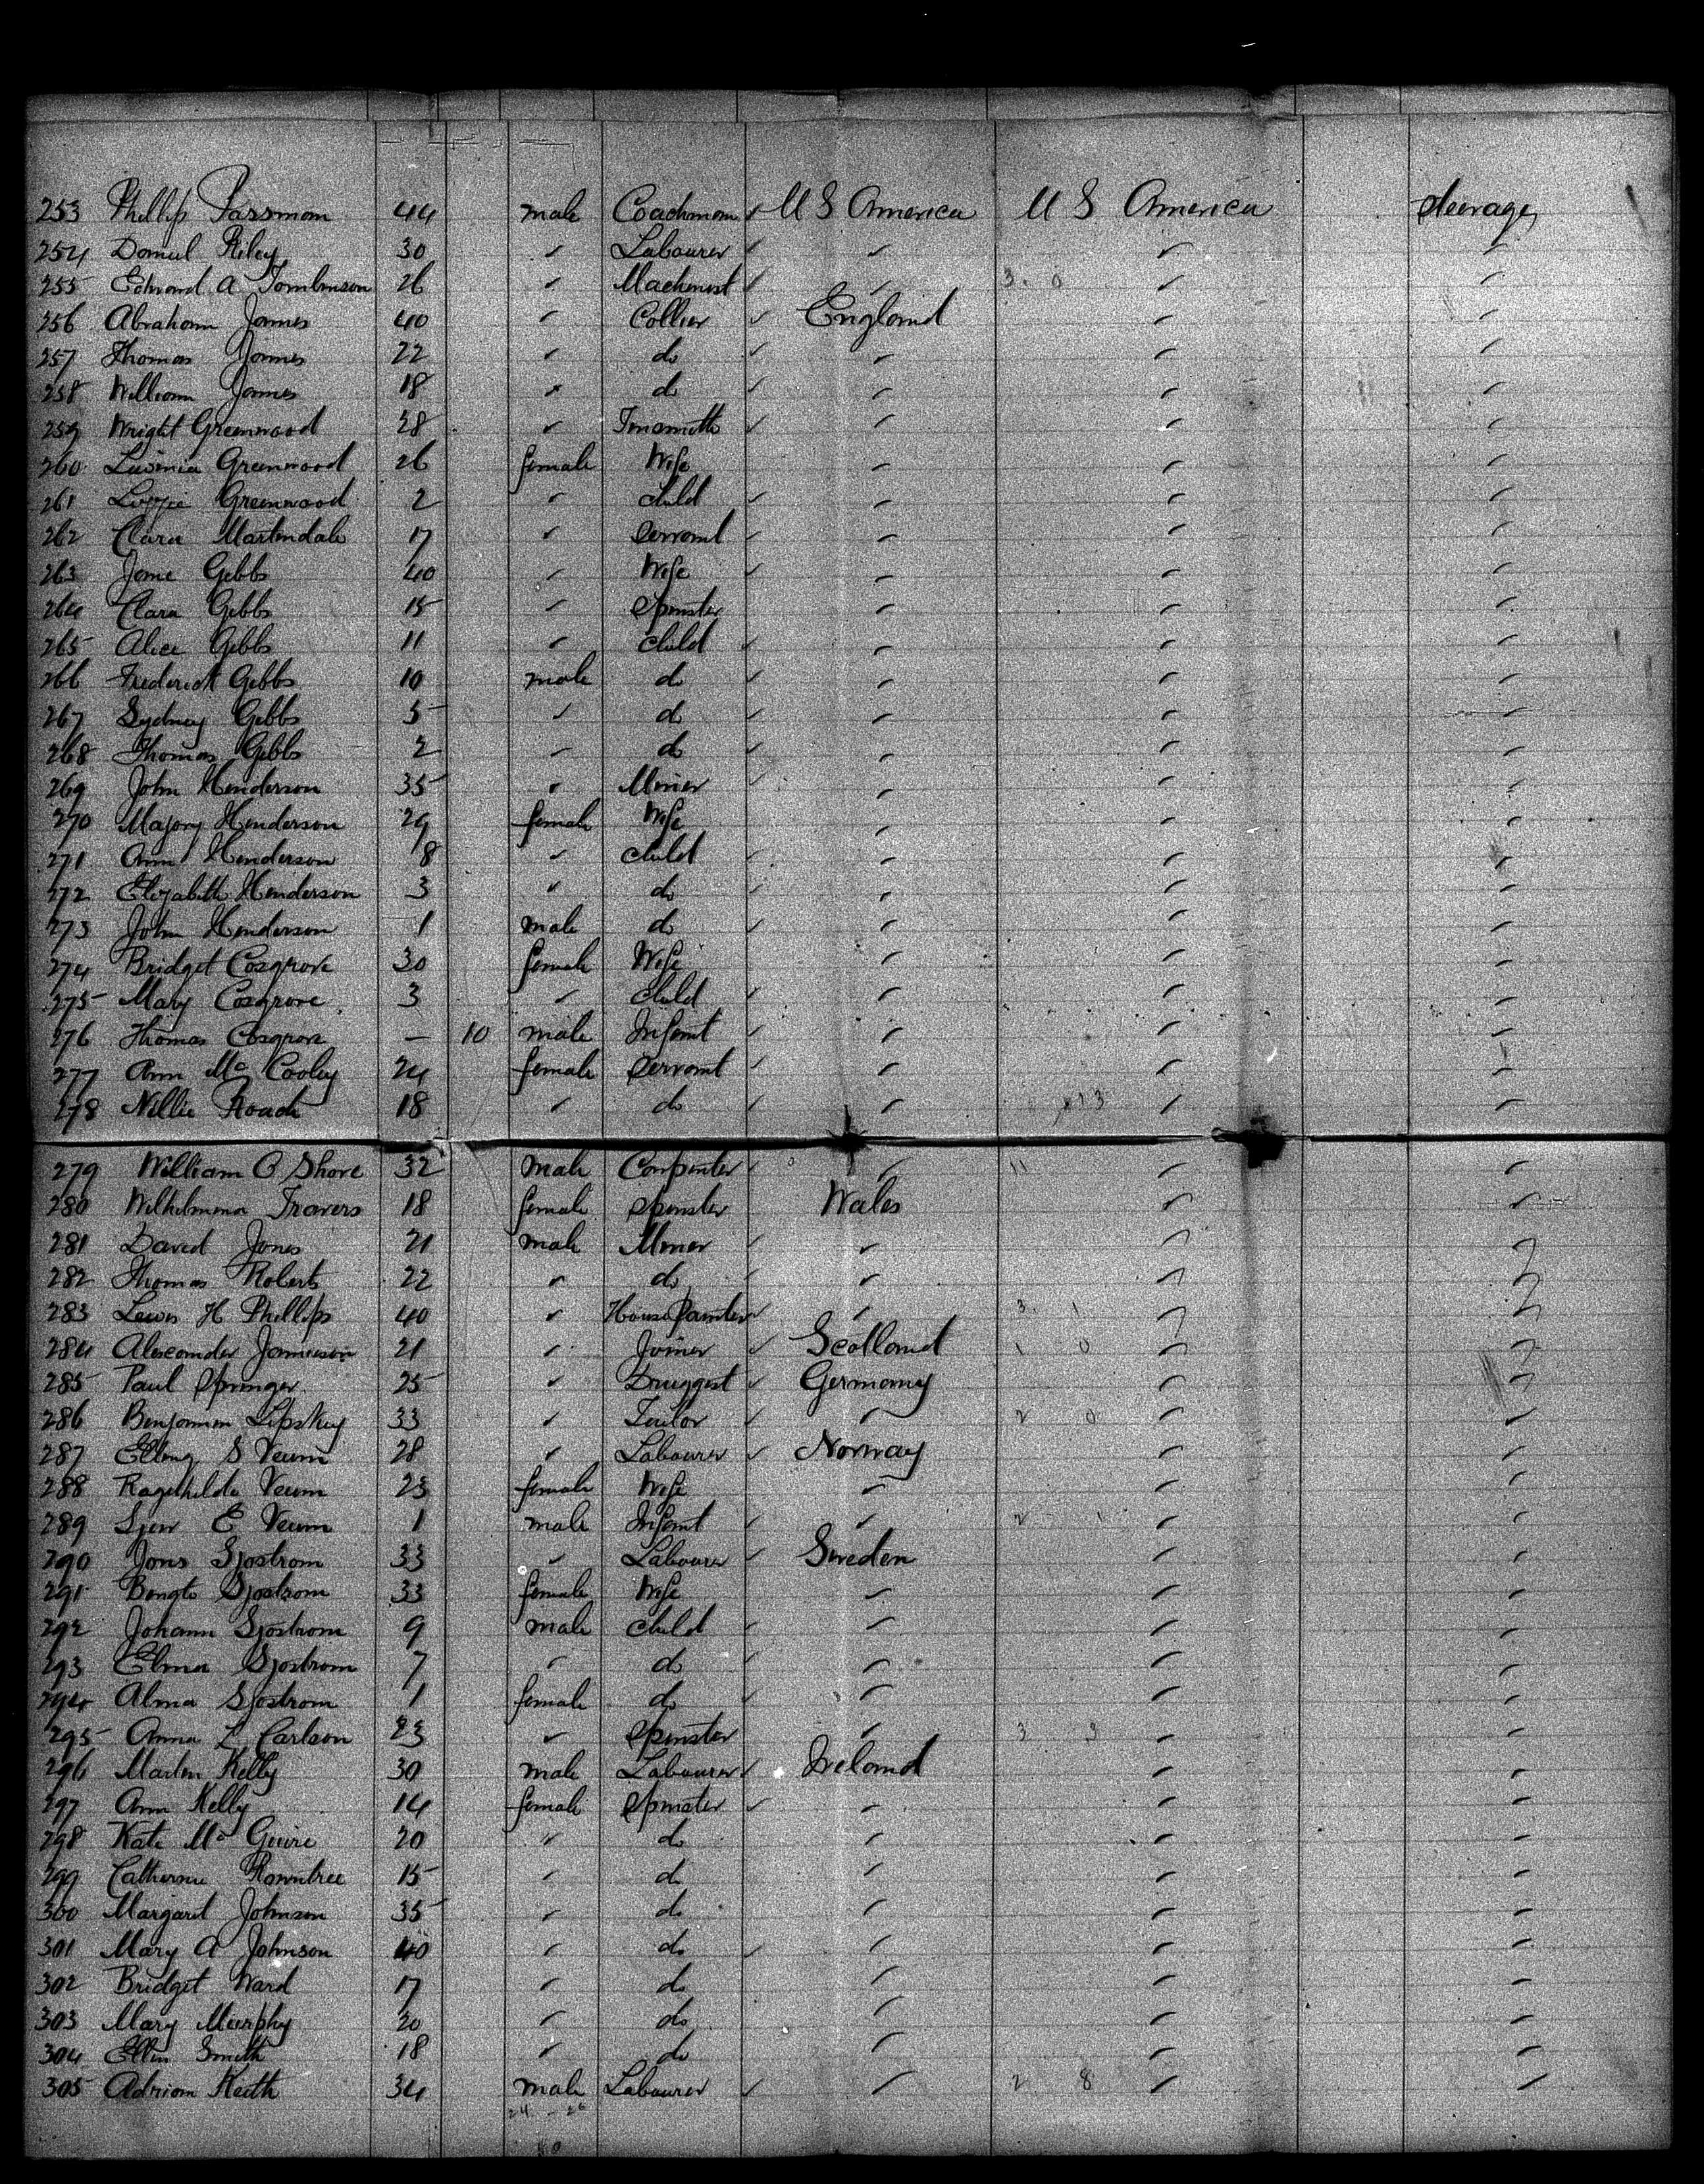 253 Phillip Passmom 44 male Coachman U S America U S America Steerage
254 Daniel Riley 30 " Labourer " " "
255 Edward A Tomlinson 26 " Machinist " 3. 0 " "
256 Abraham James 40 " Collier England " "
257 Thomas James 22 " do " " "
258 William James 18 " do " " "
259 Wright Greenwood 28 " Tinsmith " "
260 Lavinia Greenwood 26 female Wife " " "
261 Lizzie Greenwood 2 " child " " "
262 Clara Martindale 17 " Servant " " "
263 Jane Gibbs 40 " Wife " " "
264 Clara Gibbs 15 " Spinster " " "
265 Alice Gibbs 11 " child " " "
266 Frederick Gibbs 10 male do " " "
267 Sydney Gibbs 5 " do " " "
268 Thomas Gibbs 2 " do " " "
269 John Henderson 35 " Miner " " "
270 Majory Henderson 29 female Wife " " "
271 Ann Henderson 8 " child " " "
272 Elizabeth Henderson 3 " do " " "
273 John Henderson 1 male do " " "
274 Bridget Cosgrove 30 female Wife " " "
275 Mary Cosgrove 3 " child " " "
276 Thomas Cosgrove — 10 male Infant " " "
277 Ann Mc Cooley 24 female Servant " " "
278 Nellie Roach 18 " do " 13 " "
279 William C Shore 32 male Carpenter " 11 " "
280 Wilhelmina Travers 18 female Spinster Wales " "
281 David Jones 21 male Miner " " "
282 Thomas Roberts 22 " do " " "
283 Lewis H Phillips 40 " House Painter " 3. 1 " "
284 Alexander Jamieson 21 " Joiner Scotland 1 0 " "
285 Paul Springer 25 " Druggest Germany " "
286 Benjamin Lipskey 33 " Tailor " 2 0 " "
287 Elling S Veum 28 " Labourer Norway " "
288 Ragehilda Veum 23 female Wife " " "
289 Sjur E Veum 1 male Infant " 2 1 " "
290 Jons Sjostrom 33 " Labourer Sweden " "
291 Bengto Sjostrom 33 female Wife " " "
292 Johann Sjostrom 9 male child " " "
293 Elma Sjostrom 7 " do " " "
294 Alma Sjostrom 1 female do " " "
295 Anna L Carlson 23 " Spinster " 3 3 " "
296 Martin Kelly 30 male Labourer Ireland " "
297 Ann Kelly 14 female Spinster " " "
298 Kate Mc Guire 20 " do " " "
299 Catherine Rowntree 15 " do " " "
300 Margaret Johnson 35 " do " " "
301 Mary A Johnson 40 " do " " "
302 Bridget Ward 17 " do " " "
303 Mary Murphy 20 " do " " "
304 Ellen Smith 18 " do " " "
305 Adriom Keith 34 male Labourer " 2 8 " "
24 - 26